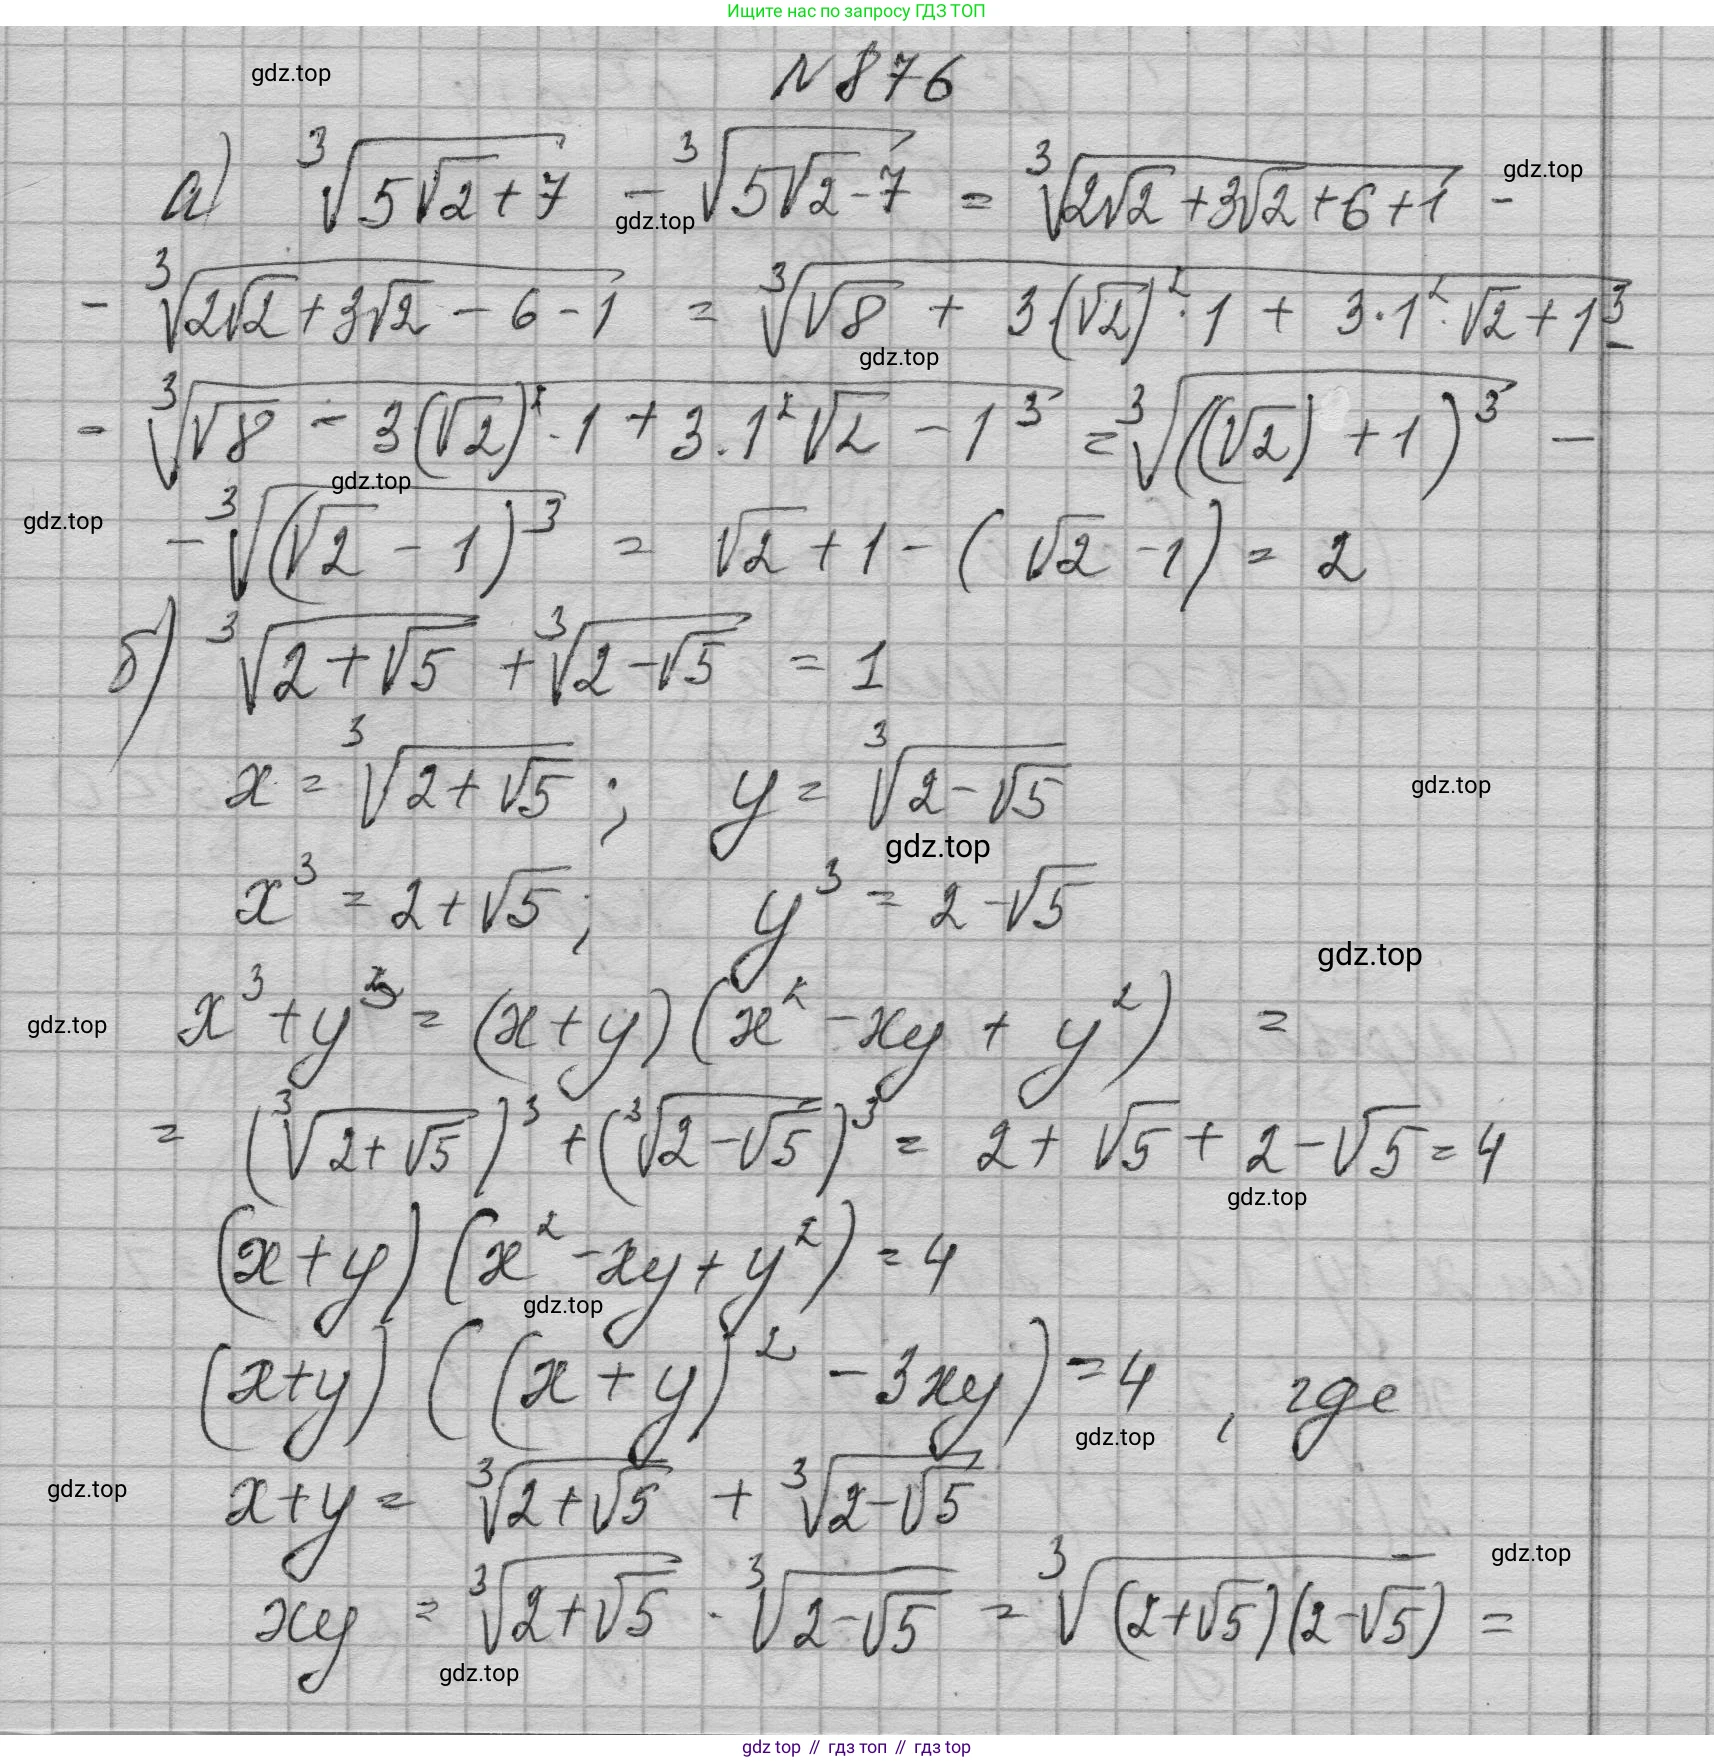 Ищите нас по запросу ГДЗ ТОП
N 876
gdz.top
а) ∛(5√2 + 7) - ∛(5√2 - 7) = ∛(2√2 + 3√2 + 6 + 1) -
gdz.top
gdz.top
- ∛(2√2 + 3√2 - 6 - 1) = ∛(√8 + 3·(√2)²·1 + 3·1²·√2 + 1³) -
gdz.top
- ∛(√8 - 3(√2)²·1 + 3·1²√2 - 1³) = ∛(((√2) + 1)³) -
gdz.top
gdz.top
- ∛((√2 - 1)³) = √2 + 1 - (√2 - 1) = 2
б) ∛(2 + √5) + ∛(2 - √5) = 1
x = ∛(2 + √5) ; y = ∛(2 - √5)
gdz.top
gdz.top
x³ = 2 + √5 ; y³ = 2 - √5
gdz.top
x³ + y³ = (x + y)(x² - xy + y²) =
gdz.top
= (∛(2 + √5))³ + (∛(2 - √5))³ = 2 + √5 + 2 - √5 = 4
gdz.top
(x + y)(x² - xy + y²) = 4
gdz.top
(x + y)((x + y)² - 3xy) = 4 , где
gdz.top
x + y = ∛(2 + √5) + ∛(2 - √5)
gdz.top
gdz.top
xy = ∛(2 + √5) · ∛(2 - √5) = ∛((2 + √5)(2 - √5)) =
gdz.top
gdz top // гдз топ // gdz top